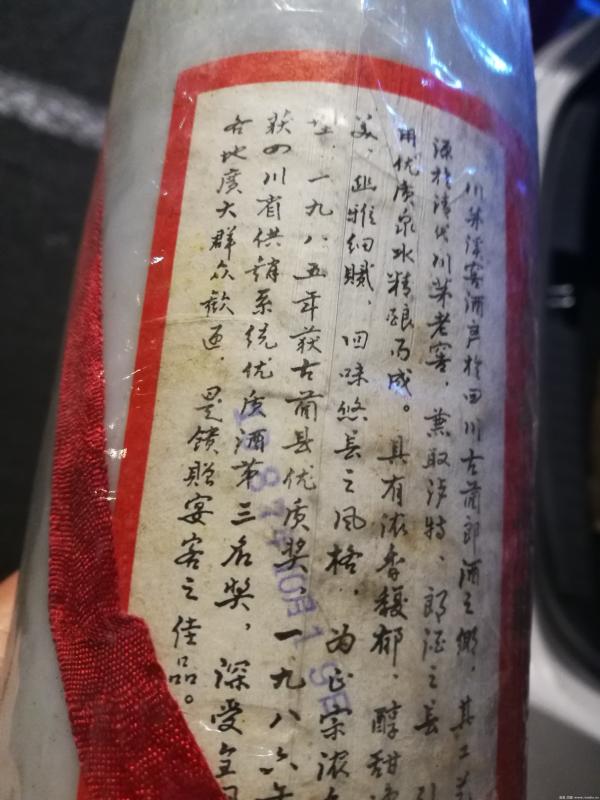 川荣溪窖酒产於四川古蔺郎酒之鄉，其工艺
源於清代川荣老窖，兼取泸特、郎酒之長，引
用优质泉水精酿而成。具有浓香馥郁、醇甜
美、幽雅细腻、回味悠長之风格，为正宗浓
型，一九八五年获古蔺县优质奖，一九八六年
获四川省供銷系统优质酒第三名奖，深受全
各地廣大群众歡迎，是饋贈宴客之佳品。
1987年10月19日